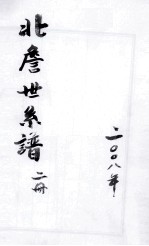 北詹世系譜
二冊
二〇〇八年